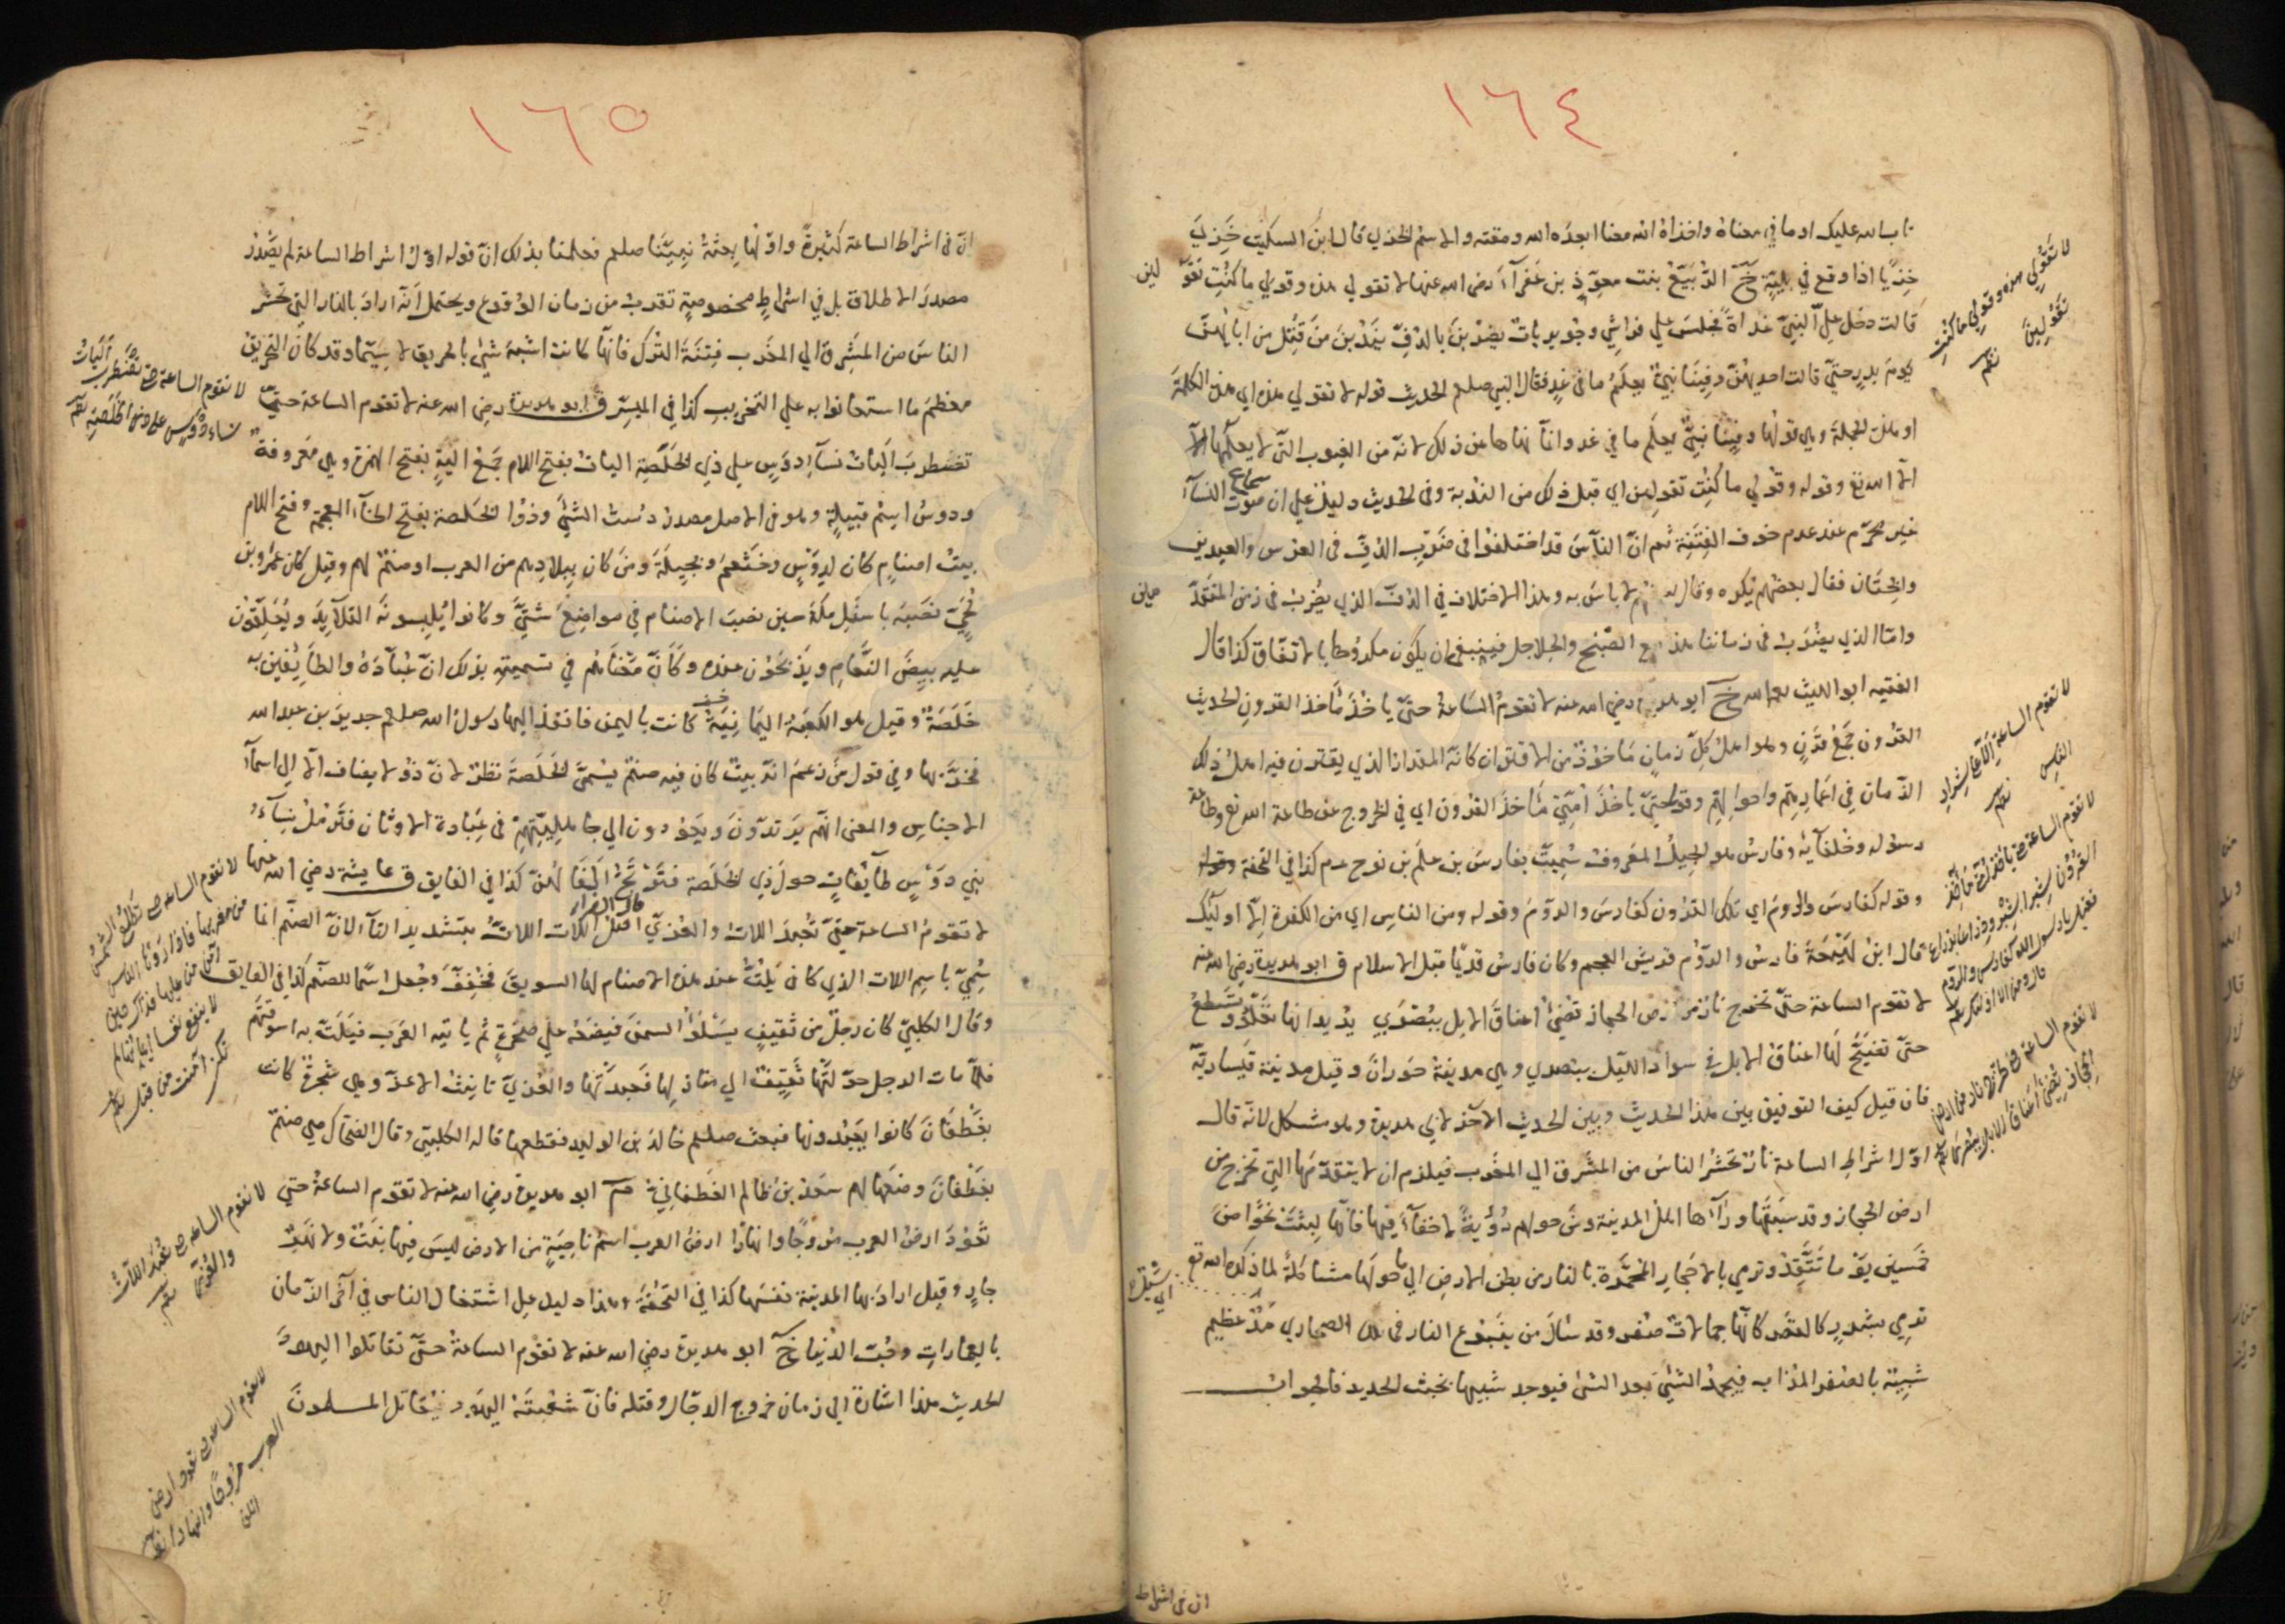 ١٦٤
تا بالله عليك او ما في معناه واخذاه الله معنا ابعده الله ومقته والاسم الخزي قال ابن السكيت خزي
خزيا اذا وقع في بلية خ الربيع بنت معوذ بن عفراء رضي الله عنها لا تقولي هذه وقولي ما كنت تقو
لين
قالت دخل علي النبي غداة فجلس علي فراشي وجويريات يضربن بالدف يندبن من قتل من ابائهن
يوم بدر حتي قالت احديهن وفينا نبي يعلم ما في غد فقال النبي صلعم الحديث قوله لا تقولي هذه اي هذه الكلمة
او هذه الجملة وهي قولها وفينا نبي يعلم ما في غد وانما نهاها عن ذلك لانه من الغيوب التي لا يعلمها
الا الله تع وقوله وقولي ما كنت تقولين اي قبل ذلك من الندبة وفي الحديث دليل علي ان سماع صوت النساء
غير محرم عند عدم خوف الفتنة ثم ان الناس قد اختلفوا في ضرب الدف في العرس والعيدين
والختان فقال بعضهم يكره وقال بعضهم لا باس به وهذا الاختلاف في الدف الذي يضرب في زمن المتقد
مين
واما الذي يضرب في زماننا هذا مع الصنج والجلاجل فينبغي ان يكون مكروها بالاتفاق كذا قال
الفقيه ابو الليث رحمه الله خ ابو هريرة رضي الله عنه لا تقوم الساعة حتي ياخذ ماخذ القرون الحديث
القرون جمع قرن وهو اهل كل زمان ماخوذ من الاقتران كانه المقدار الذي يقترن فيه اهل ذلك
الزمان في اعمارهم واحوالهم وقوله حتي ياخذ امتي ماخذ القرون اي في الخروج عن طاعة الله تع وطاعة
رسوله وخلفائه وفارس هو الجيل المعروف سميت بفارس بن علم بن نوح عم كذا في التحفة
وقوله كفارس والروم اي تلك القرون كفارس والروم وقوله ومن الناس اي من الكفرة الا اوليك
قال ابن لهيعة فارس والروم قريش العجم وكان فارس قديما قبل الاسلام ق ابو هريرة رضي الله عنه
لا تقوم الساعة حتي تخرج نار من ارض الحجاز تضئ اعناق الابل ببصري يريد انها تعلو وتسطع
حتي تضئ لها اعناق الابل في سواد الليل ببصري وهي مدينة حوران وقيل مدينة قيسارية
فان قيل كيف التوفيق بين هذا الحديث وبين الحديث الاخر لابي هريرة وهو مشكل لانه قال
اول اشراط الساعة نار تحشر الناس من المشرق الي المغرب فيلزم ان لا يتقدمها التي تخرج من
ارض الحجاز وقد سبقتها ورآها اهل المدينة ومن حولهم رؤية لا خفاء فيها فانها لبثت نحوا من
خمسين يوما تتقد وترمي بالاحجار المحمرة بالنار من بطن الارض الي ما حولها مشاكلة لما ذكره الله تع
ترمي بشرر كالقصر كانها جمالات صفر وقد سال من ينبوع النار في تلك الصحاري مد عظيم
شبيه بالصفر المذاب فيجمد الشئ بعد الشئ فيوجد شبيها بخبث الحديد فالجواب
ان في اشراط
لا تقولي هذه وقولي ما كنت
تقولين
لا تقوم الساعة الا علي شرار
الناس
لا تقوم الساعة حتي ياخذ امتي ماخذ
القرون شبرا بشبر وذراعا بذراع
فقيل يا رسول الله كفارس والروم
قال ومن الناس الا اولئك
لا تقوم الساعة حتي تخرج نار من ارض
الحجاز تضئ اعناق الابل ببصري
١٦٥
ان في اشراط الساعة كثيرة واولها بعثة نبينا صلعم فعلمنا بذلك ان قوله اول اشراط الساعة لم يصدر
مصدر الاطلاق بل في اشراط مخصوصة تقرب من زمان الوقوع ويحتمل انه اراد بالنار التي تحشر
الناس من المشرق الي المغرب فتنة الترك فانها كانت اشبه شئ بالحريق لا سيما وقد كان التحريق
معظم ما استعانوا به علي التخريب كذا في الميسر ق ابو هريرة رضي الله عنه لا تقوم الساعة حتي
تضطرب اليات نساء دوس علي ذي الخلصة اليات بفتح اللام جمع الية بفتح الهمزة وهي معروفة
ودوس اسم قبيلة وهو في الاصل مصدر دست الشئ وذو الخلصة بفتح الخاء المعجمة وفتح اللام
بيت اصنام كان لدوس وخثعم وبجيلة ومن كان ببلادهم من العرب او صنم لهم وقيل كان عمرو بن
لحي نصبه باسفل مكة حين نصب الاصنام في مواضع شتي وكانوا يلبسونه القلايد ويعلقون
عليه بيض النعام ويذبحون عنده وكان معناهم في تسميته بذلك ان عباده والطايفين به
خلصة وقيل هو الكعبة اليمانية كانت باليمن فانفذ اليها رسول الله صلعم جرير بن عبد الله
فخربها وفي قول من زعم انه بيت كان فيه صنم يسمي الخلصة نظر لان ذو لا يضاف الا الي اسماء
الاجناس والمعني انهم يرتدون ويعودون الي جاهليتهم في عبادة الاوثان فترمل نساء
بني دوس طايفات حول ذي الخلصة فترتج اكفالهن كذا في الفايق ق عايشة رضي الله عنها
لا تقوم الساعة حتي تعبد اللات والعزي اصل اللات اللات بتشديد التاء لان الصنم انما
سمي باسم اللات الذي كان يلت عند هذه الاصنام لها السويق فخفف وجعل اسما للصنم كذا في الفايق
وقال الكلبي كان رجل من ثقيف يسلؤ السمن فيضعه علي صخرة ثم ياتيه العرب فيلت به اسوقتهم
فلما مات الرجل حولتها ثقيف الي منازلها فعبدتها والعزي تانيث الاعز وهي شجرة كانت
بغطفان كانوا يعبدونها فبعث صلعم خالد بن الوليد فقطعها قاله الكلبي وقال الضحاك هي صنم
بغطفان وضعها لهم سعد بن ظالم الغطفاني م ابو هريرة رضي الله عنه لا تقوم الساعة حتي
تعود ارض العرب مروجا وانهارا ارض العرب اسم ناحية من الارض ليس فيها نبت ولا نهر
جار وقيل اراد بها المدينة نفسها كذا في التحفة وهذا دليل علي اشتغال الناس في آخر الزمان
بالعمارات وحب الدنيا خ ابو هريرة رضي الله عنه لا تقوم الساعة حتي تقاتلوا اليهود
الحديث هذا اشارة الي زمان خروج الدجال وقتله فان شعبته اليهود فيقاتل المسلمون
لا تقوم الساعة حتي تضطرب اليات
نساء دوس علي ذي الخلصة
لا تقوم الساعة حتي تطلع الشمس
من مغربها فاذا رءاها الناس
آمن من عليها فذاك حين
لا ينفع نفسا ايمانها لم
تكن آمنت من قبل
لا تقوم الساعة حتي تعبد اللات
والعزي
لا تقوم الساعة حتي تعود ارض
العرب مروجا وانهارا